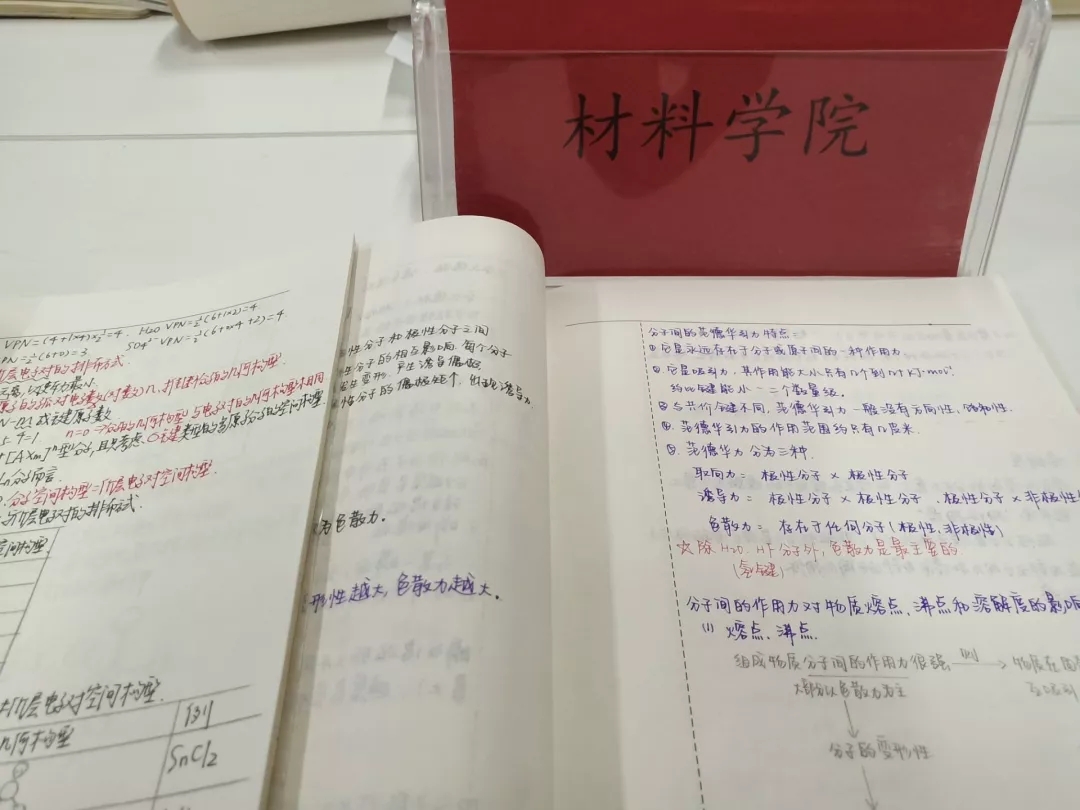 材料学院
VPN=(4+1×4)×½=4. H2O VPN=½(6+1×2)=4
PN=½(6+0)=3 SO4²⁻ VPN=½(6+0×4+2)=4
层电子对的排布方式.
斥力最小
n=0
型分子,且只考虑σ键
分子空间构型=价层电子对空间构型.
价层电子对的排布式.
空间构型
价层电子对空间构型.
几何构型
例
SnCl2
性分子和极性分子之间
性分子的相互影响,每个分子
发生变形,产生诱导偶极.
性分子的偶极矩个,出现诱导力.
为色散力.
形性越大,色散力越大.
分子间的范德华引力特点:
①它是永远存在于分子或原子间的一种作用力
②它是吸引力,其作用能大小只有几个到几十kJ·mol⁻¹
约比键能小一二个数量级.
③与共价键不同,范德华引力一般没有方向性、饱和性.
④.范德华引力的作用范围约只有几皮米.
⑤.范德华力分为三种.
取向力: 极性分子 × 极性分子
诱导力: 极性分子 × 极性分子 .极性分子 × 非极性
色散力: 存在于任何分子(极性、非极性)
☆除H2O、HF分子外,色散力是最主要的.
(氢键)
分子间的作用力对物质熔点、沸点和溶解度的影响
(1) 熔点、沸点.
组成物质分子间的作用力很强 则→ 物质在
大部分以色散力为主
分子的变形性